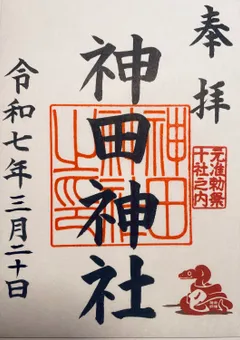 奉拝
元准勅祭
十社之内
神田神社
令和七年三月二十日